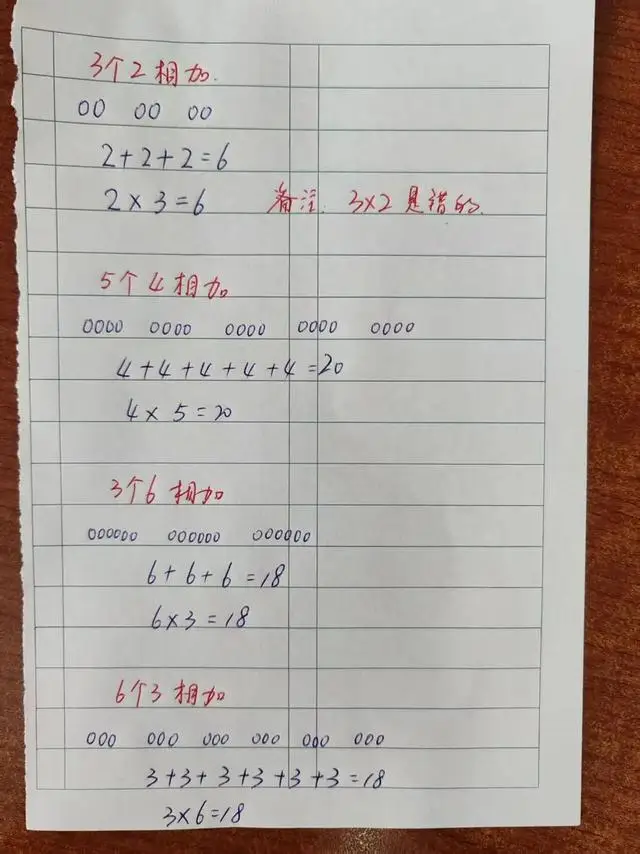 3个2相加.
00 00 00
2+2+2=6
2×3=6 备注: 3×2是错的.
5个4相加
0000 0000 0000 0000 0000
4+4+4+4+4=20
4×5=20
3个6相加
000000 000000 000000
6+6+6=18
6×3=18
6个3相加
000 000 000 000 000 000
3+3+3+3+3+3=18
3×6=18